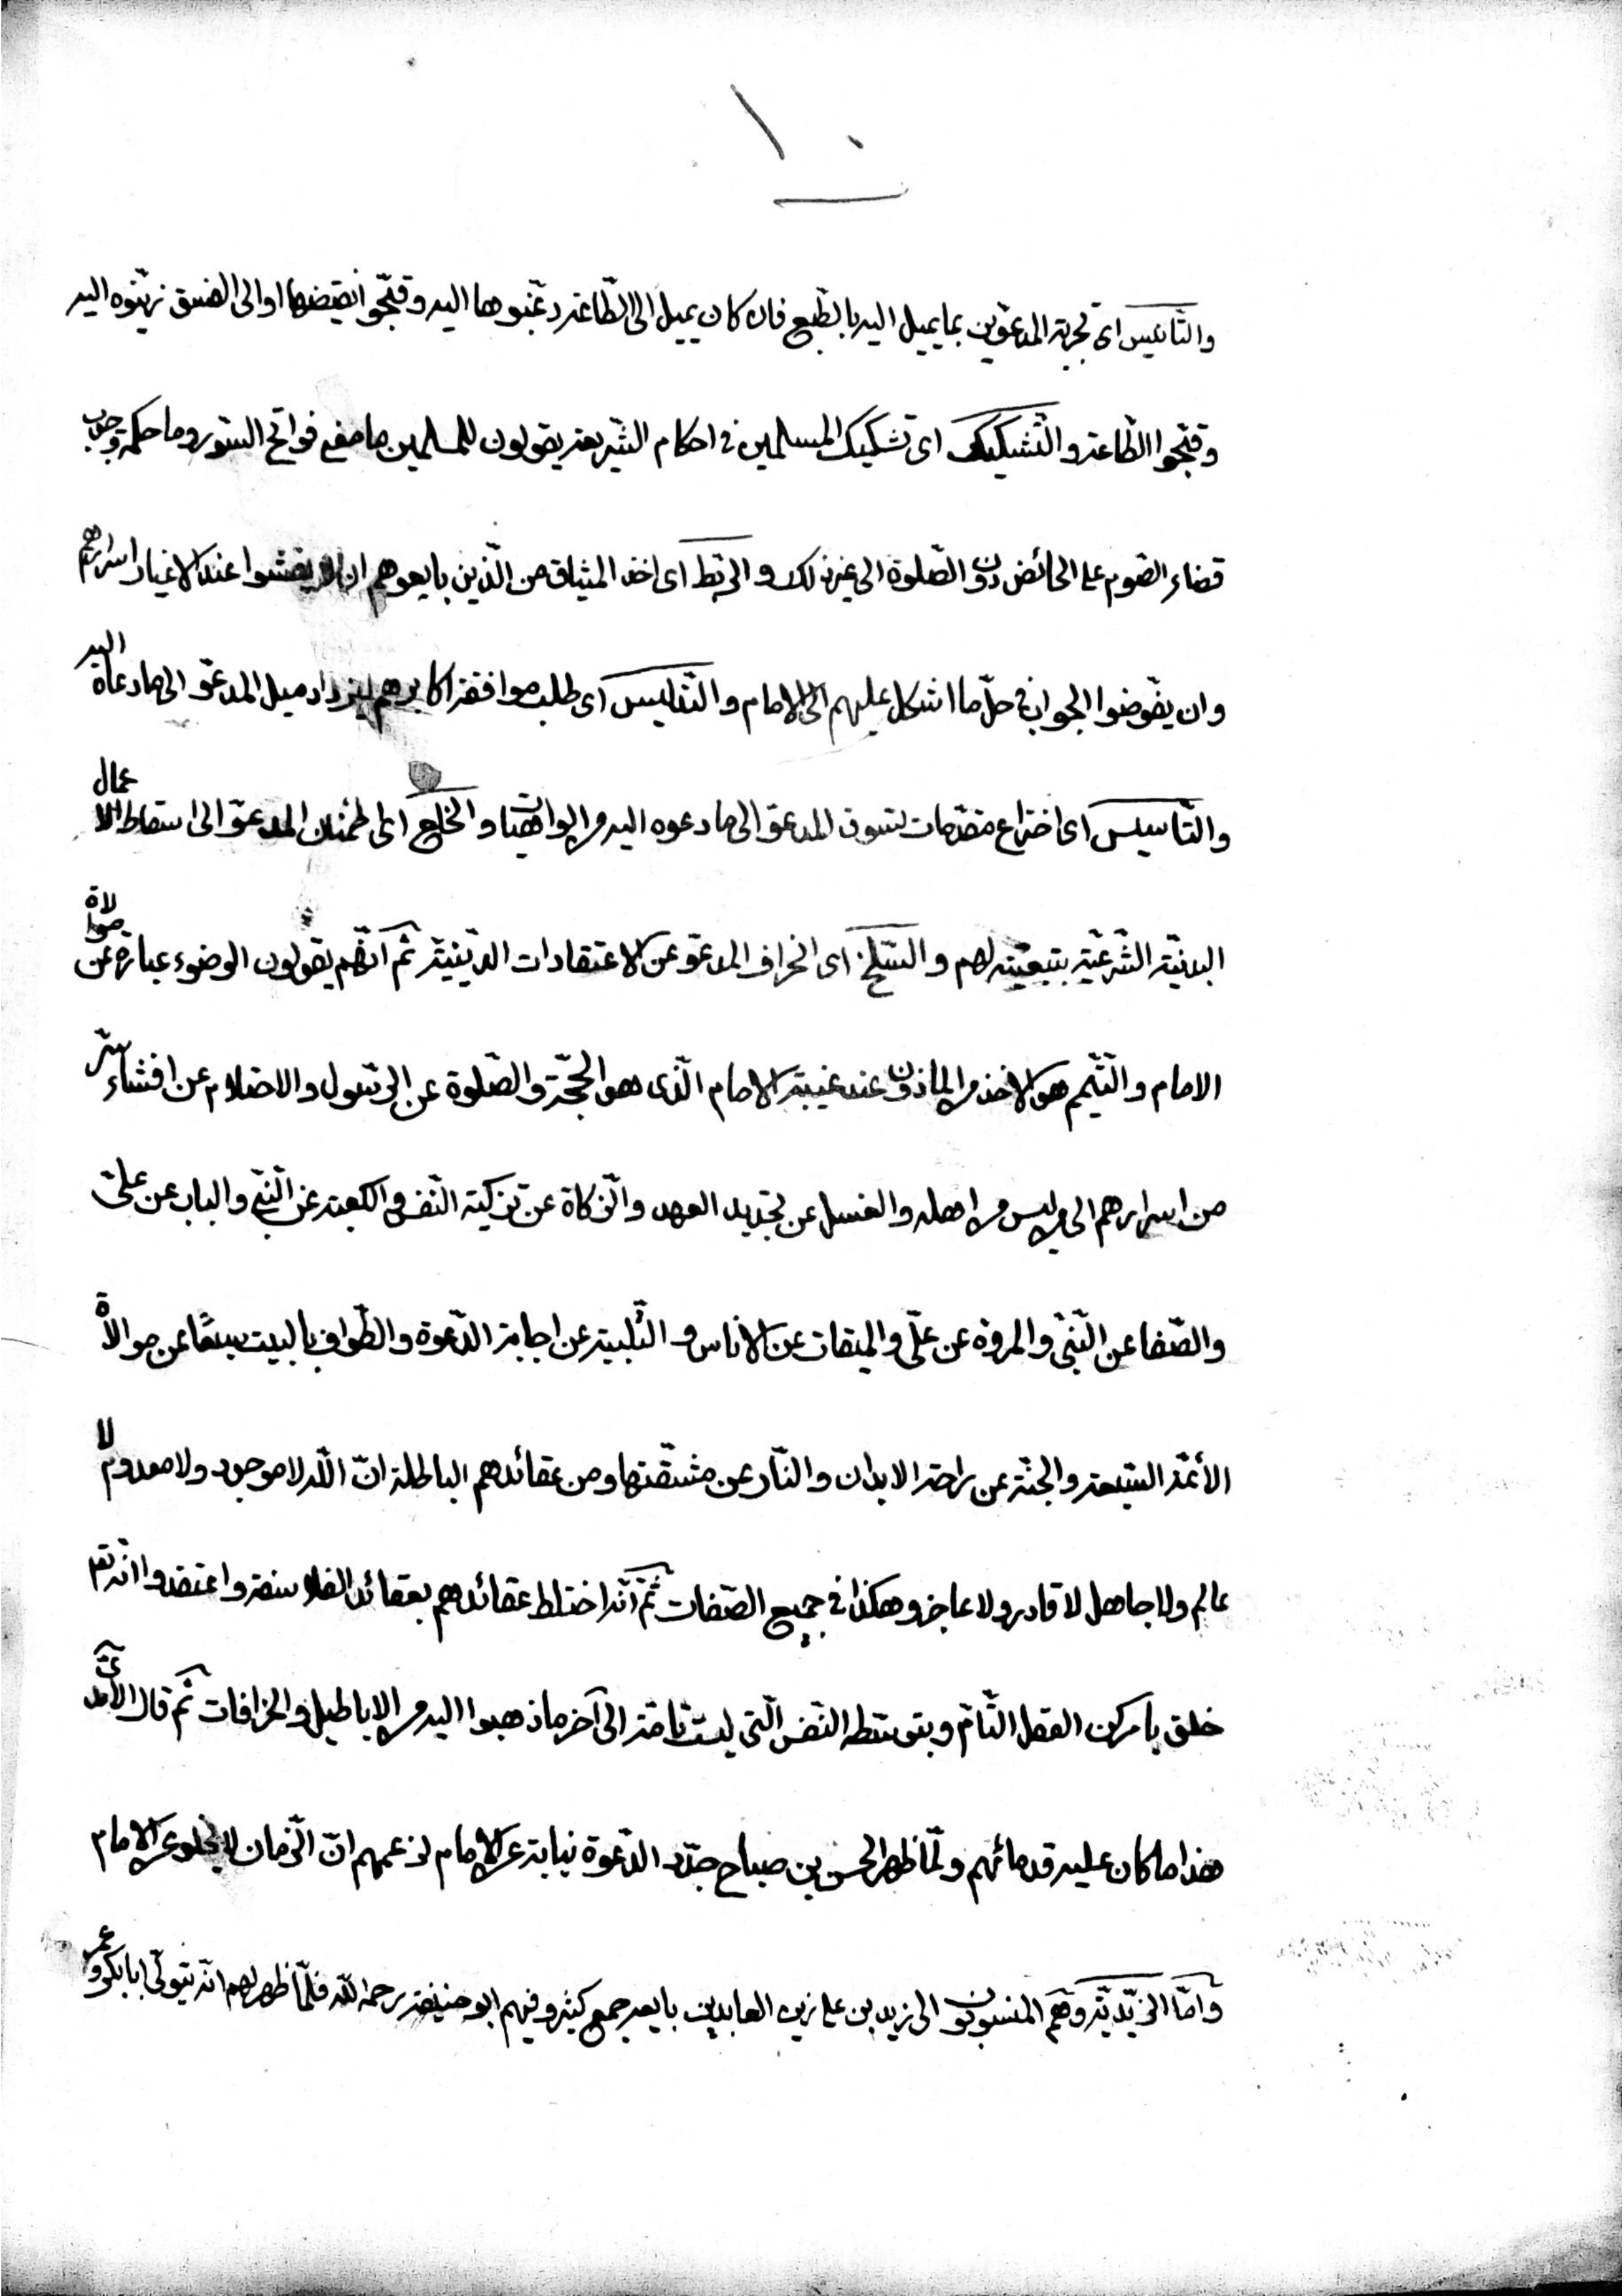 ١٠
والتأنيس اى تجربة المدعوّين بما يميل اليه بالطّبع فان كان يميل الى الطّاعة رغّبوها اليه وقبّحوا نقيضها او الى الفسق زيّنوه اليه
وقبّحوا الطّاعة والتّشكيك اى تشكيك المسلمين فى احكام الشّريعة يقولون للمسلمين ما معنى فواتح السّور وما حكمة وجوب
قضاء الصّوم على الحائض دون الصّلوة الى غير ذلك والرّبط اى اخذ الميثاق من الّذين بايعوهم ان لا يفشوا عند الاغيار اسرارهم
وان يفوّضوا الجواب فى حلّ ما اشكل عليهم الى الامام والتّدليس اى طلب موافقة اكابرهم ليزداد ميل المدعوّ الى ما دعاه اليه
والتّأسيس اى اختراع مقدّمات لتسوق المدعوّ الى ما دعوه اليه من الواهيات والخلع اى اطمئنان المدعوّ الى اسقاط الاعمال
البدنيّة الشّرعيّة بتبعيّته لهم والسّلخ اى انحراف المدعوّ عن الاعتقادات الدّينيّة ثمّ انّهم يقولون الوضوء عبارة عن موالاة
الامام والتّيمّم هو الاخذ من المأذون عند غيبة الامام الّذى هو الحجّة والصّلوة عن الرّسول والاحتلام عن افشاء سرّ
من اسرارهم الى من ليس من اهله والغسل عن تجديد العهد والزّكاة عن تزكية النّفس والكعبة عن النّبىّ والباب عن علىّ
والصّفا عن النّبىّ والمروة عن علىّ والميقات عن الاناس والتّلبية عن اجابة الدّعوة والطّواف بالبيت سبعًا عن موالاة
الأئمّة السّبعة والجنّة عن راحة الابدان والنّار عن مشقّتها ومن عقائدهم الباطلة انّ اللّه لا موجود ولا معدوم لا
عالم ولا جاهل لا قادر ولا عاجز وهكذا فى جميع الصّفات ثمّ انّه اختلط عقائدهم بعقائد الفلاسفة واعتقدوا انّه تعم
خلق بامر كن العقل التّامّ وبتوسّطه النّفس الّتى ليست تامّة الى آخر ما ذهبوا اليه من الاباطيل والخرافات ثمّ قال الآمدىّ
هذا ما كان عليه قدمائهم ولمّا ظهر الحسن بن صباح جدّد الدّعوة نيابة عن الامام لزعمهم انّ الزّمان لا يخلو عن الامام
وامّا الزّيديّة وهم المنسوبون الى زيد بن على زين العابدين بايعه جمع كثير وفيهم ابو حنيفة رحمه اللّه فلمّا ظهر لهم انّه يتولّى ابا بكر وعمر